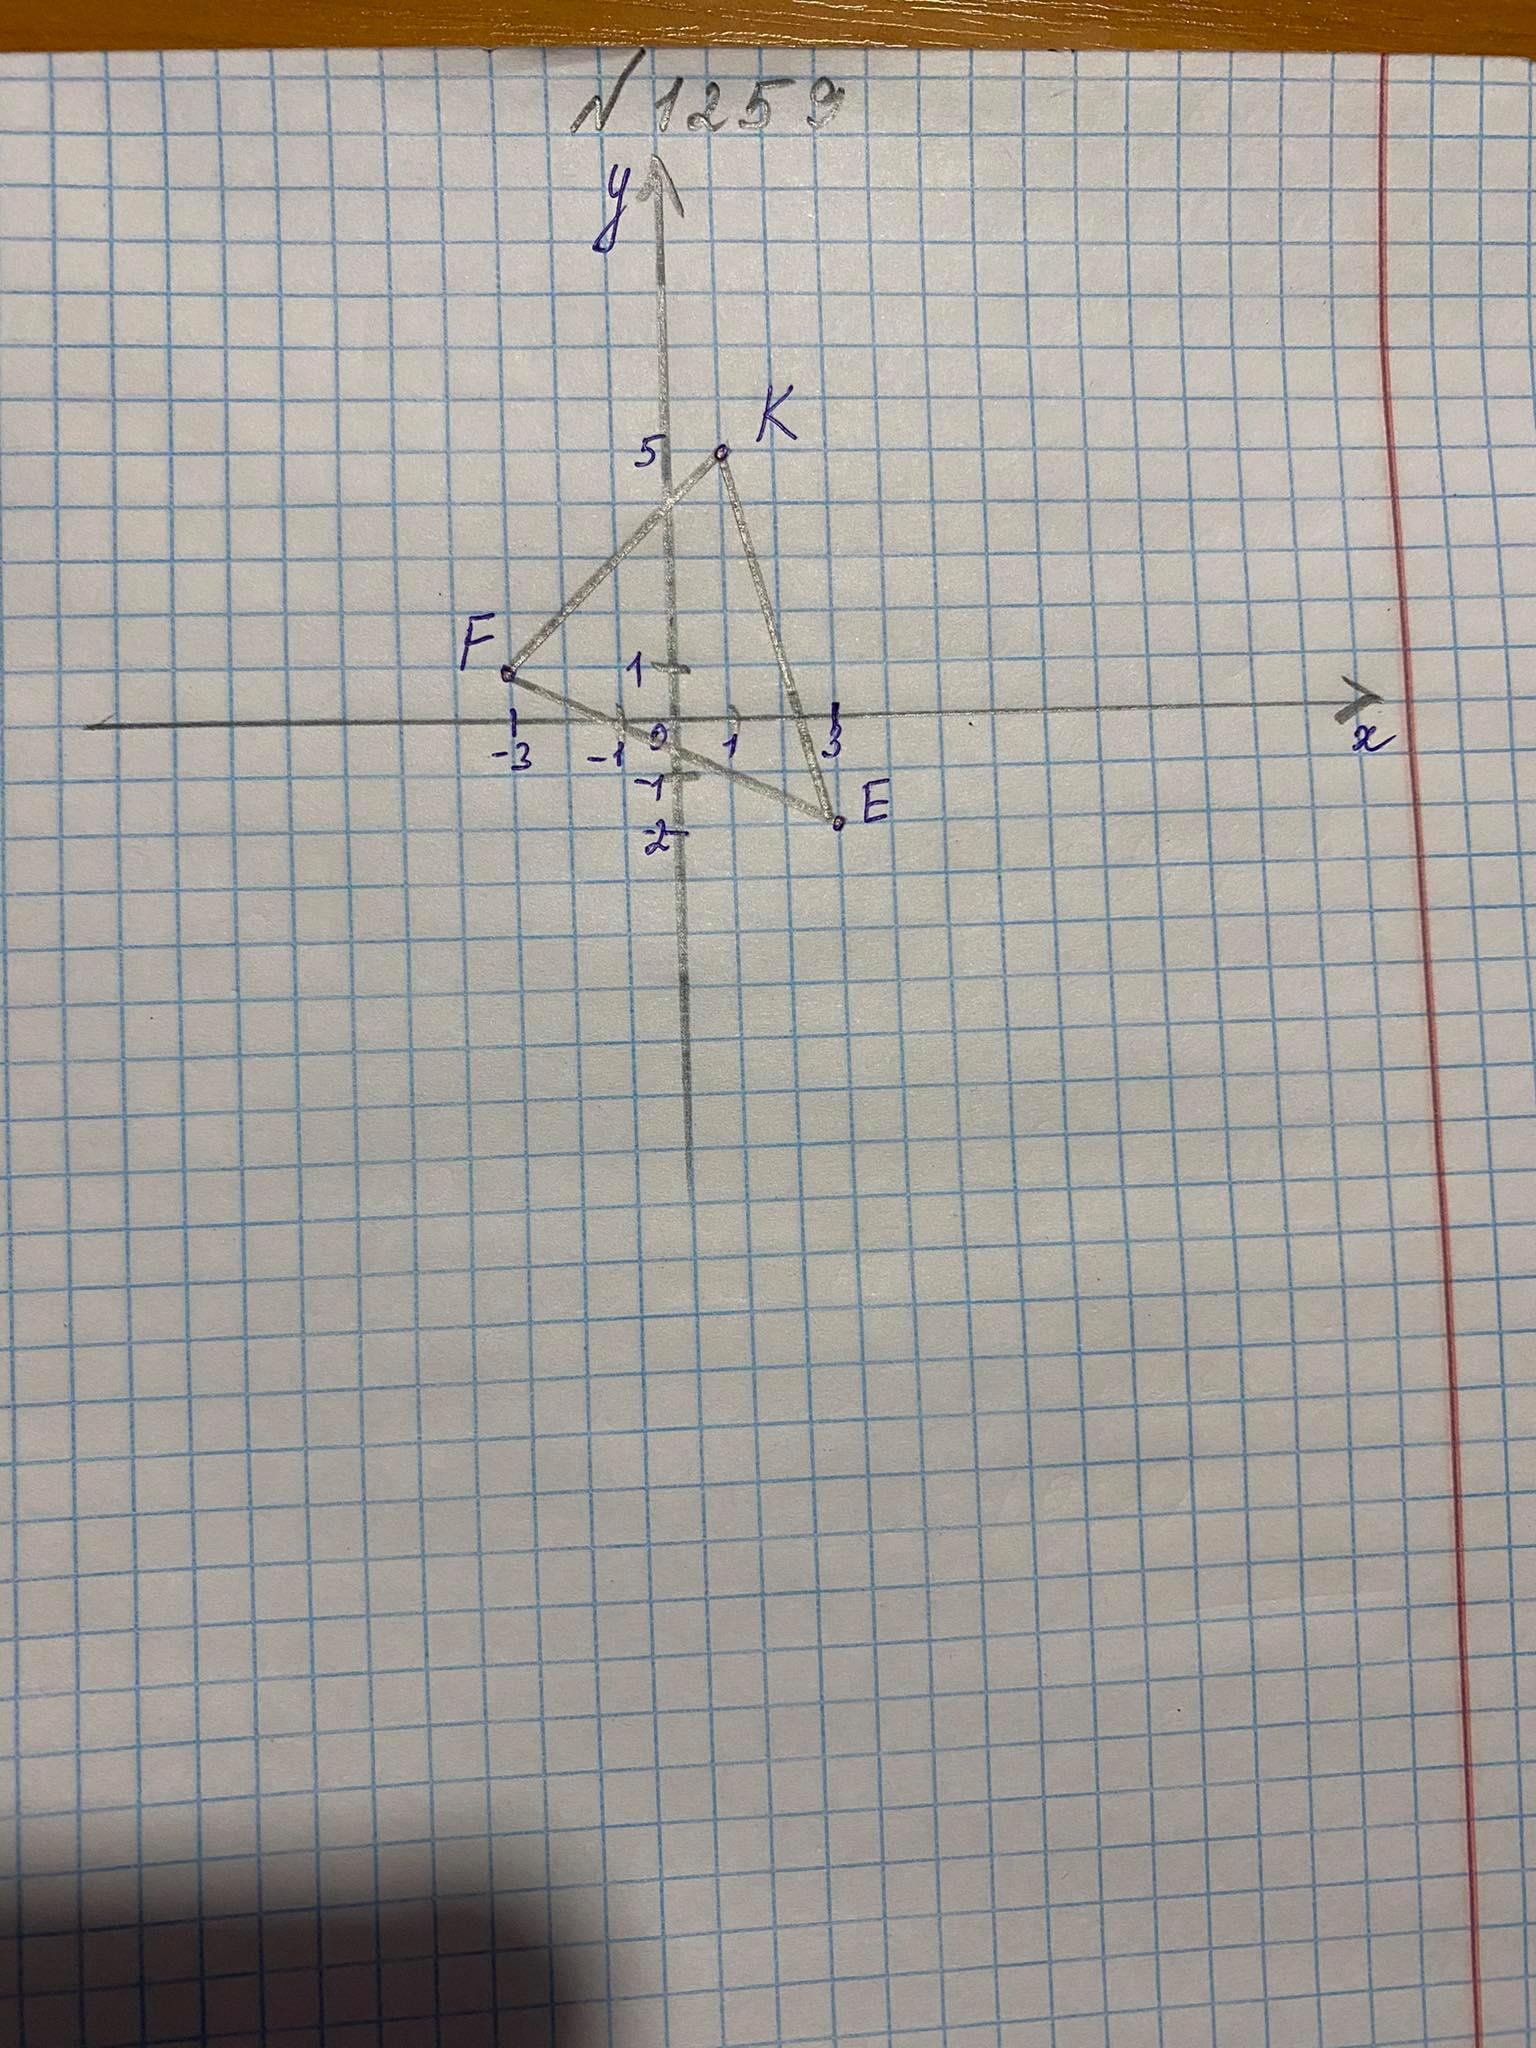 №1259
y
K
5
F
1
-3 -1 0 1 3
x
-1
E
-2